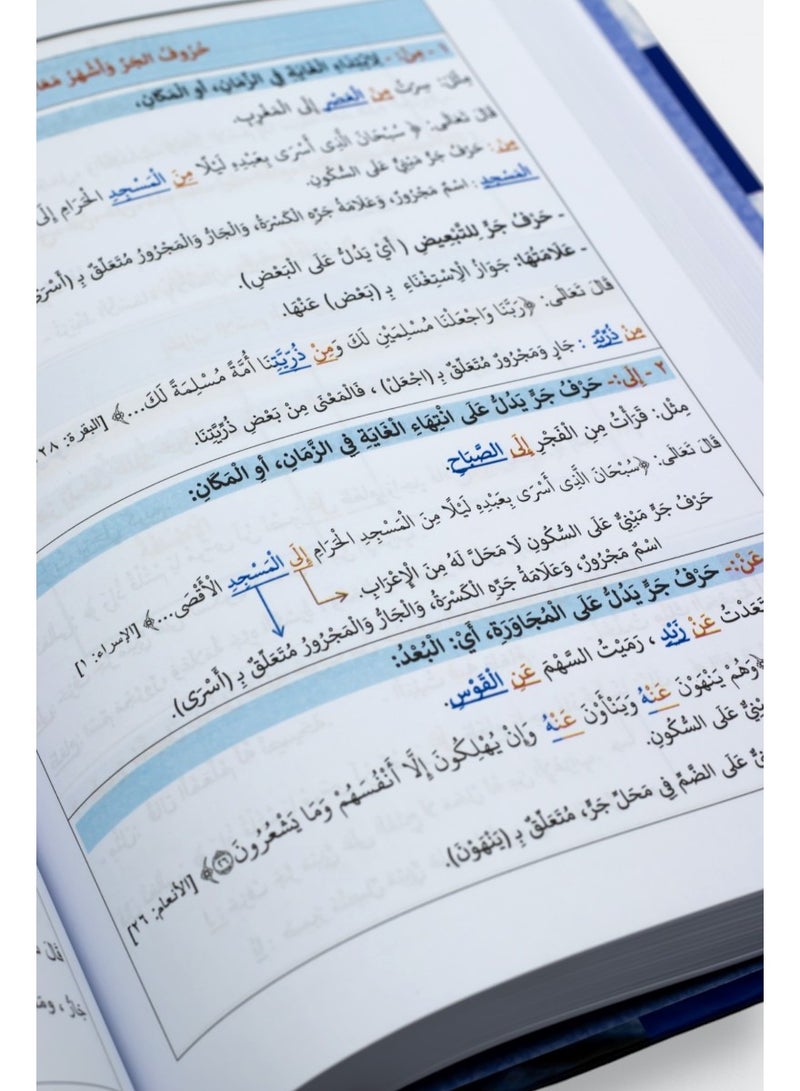 حُرُوفُ الجَرِّ وَأَشْهَرُ
١ - مِنْ: - لِابْتِدَاءِ الْغَايَةِ فِي الزَّمَانِ، أَوِ الْمَكَانِ،
مِثْل: سِرْتُ مِنَ الْعَصْرِ إِلَى الْمَغْرِبِ.
قَالَ تَعَالَى: ﴿ سُبْحَانَ الَّذِي أَسْرَى بِعَبْدِهِ لَيْلًا مِنَ الْمَسْجِدِ الْحَرَامِ إِلَى
مِنَ: حَرْفُ جَرٍّ مَبْنِيٌّ عَلَى السُّكُونِ.
الْمَسْجِدِ: اسْمٌ مَجْرُورٌ، وَعَلَامَةُ جَرِّهِ الْكَسْرَةُ، وَالْجَارُّ وَالْمَجْرُورُ مُتَعَلِّقٌ بِـ (أَسْرَى
- حَرْفُ جَرٍّ لِلتَّبْعِيضِ ( أَيْ يَدُلُّ عَلَى الْبَعْضِ).
- عَلَامَتُهَا: جَوَازُ الِاسْتِغْنَاءِ بِـ (بَعْضِ) عَنْهَا.
قَالَ تَعَالَى: ﴿رَبَّنَا وَاجْعَلْنَا مُسْلِمَيْنِ لَكَ وَمِنْ ذُرِّيَّتِنَا أُمَّةً مُسْلِمَةً لَكَ...﴾ [البقرة: ٢٨
مِنْ ذُرِّيَّةِ : جَارٌ وَمَجْرُورٌ مُتَعَلِّقٌ بِـ (اجْعَلْ) ، فَالْمَعْنَى مِنْ بَعْضِ ذُرِّيَّتِنَا.
٢ - إِلَى:- حَرْفُ جَرٍّ يَدُلُّ عَلَى انْتِهَاءِ الْغَايَةِ فِي الزَّمَانِ، أَوِ الْمَكَانِ:
مِثْل: قَرَأْتُ مِنَ الْفَجْرِ إِلَى الصَّبَاحِ.
قَالَ تَعَالَى: ﴿سُبْحَانَ الَّذِي أَسْرَى بِعَبْدِهِ لَيْلًا مِنَ الْمَسْجِدِ الْحَرَامِ إِلَى الْمَسْجِدِ الْأَقْصَى...﴾ [الإسراء: ١]
حَرْفُ جَرٍّ مَبْنِيٌّ عَلَى السُّكُونِ لَا مَحَلَّ لَهُ مِنَ الْإِعْرَابِ.
اسْمٌ مَجْرُورٌ، وَعَلَامَةُ جَرِّهِ الْكَسْرَةُ، وَالْجَارُّ وَالْمَجْرُورُ مُتَعَلِّقٌ بِـ (أَسْرَى).
عَنْ:- حَرْفُ جَرٍّ يَدُلُّ عَلَى الْمُجَاوَزَةِ، أَيْ: الْبُعْدُ:
عَنْ زَيْدٍ ، رَمَيْتُ السَّهْمَ عَنِ الْقَوْسِ.
﴿وَهُمْ يَنْهَوْنَ عَنْهُ وَيَنْأَوْنَ عَنْهُ وَإِنْ يُهْلِكُونَ إِلَّا أَنْفُسَهُمْ وَمَا يَشْعُرُونَ ٢٦﴾ [الأنعام: ٢٦]
عَلَى السُّكُونِ.
عَلَى الضَّمِّ فِي مَحَلِّ جَرٍّ، مُتَعَلِّقٌ بِـ (يَنْهَوْنَ).
قَالَ
جَارٌّ ،